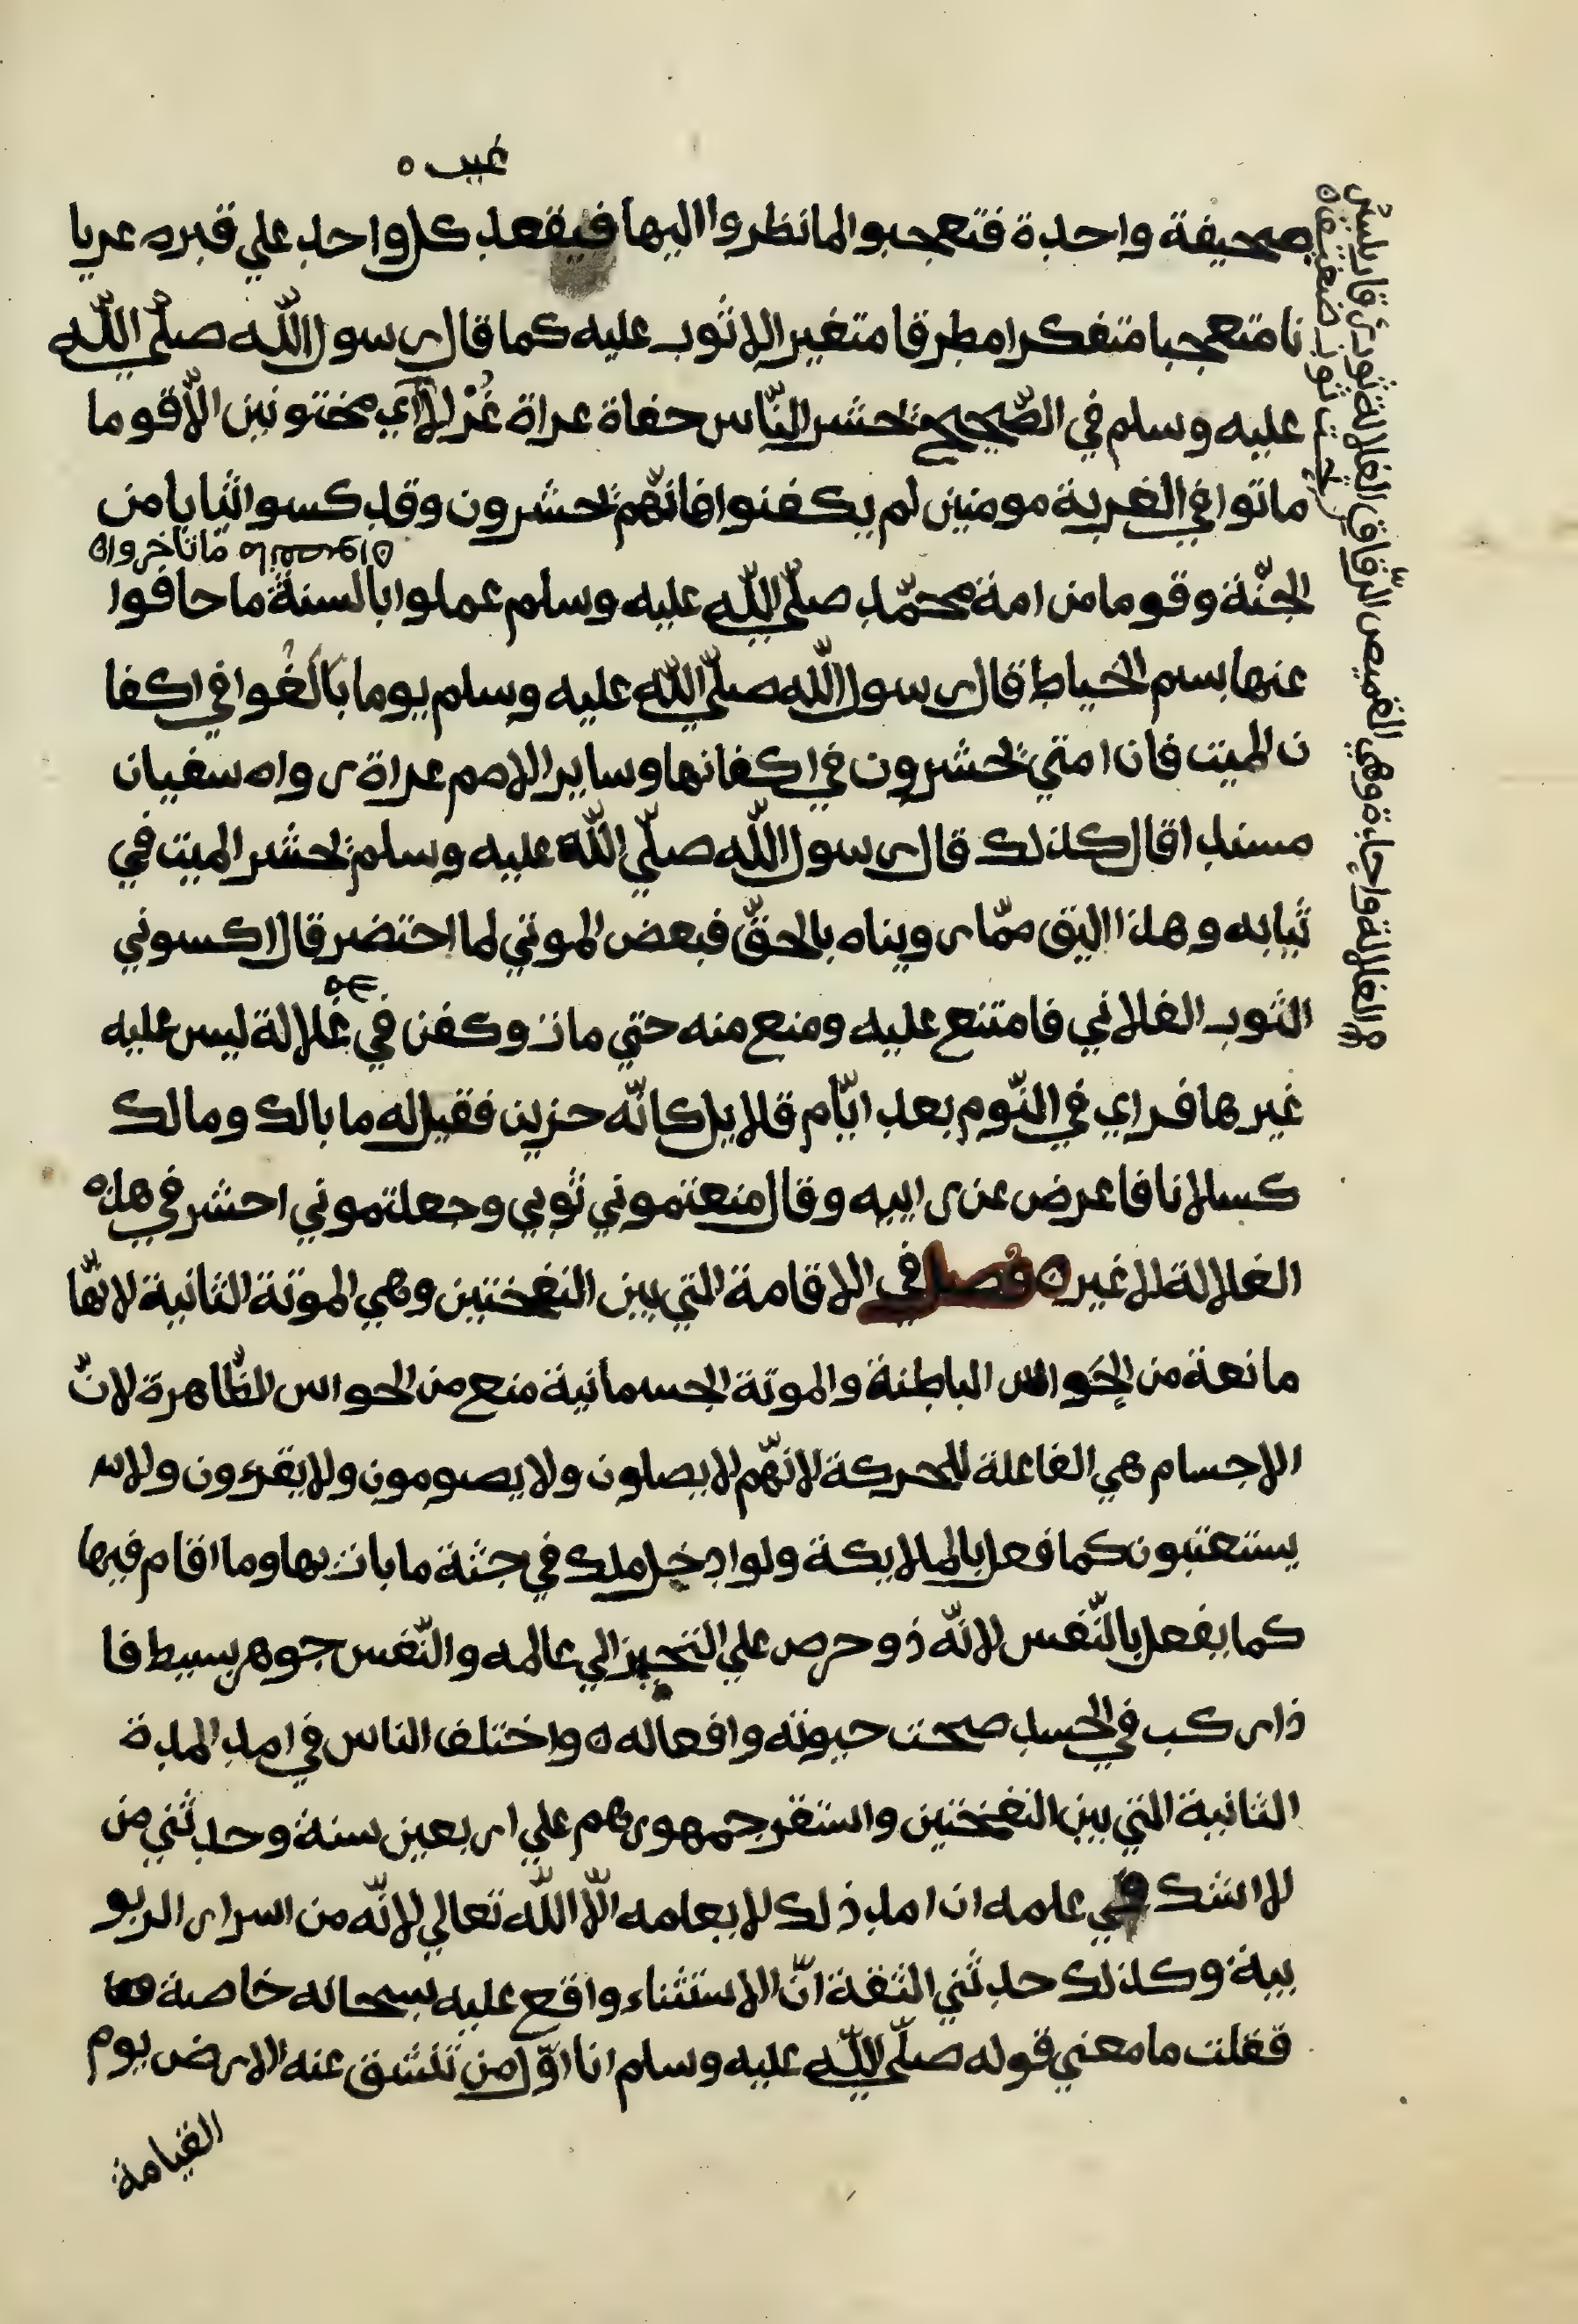 غيب ه
صحيفة واحدة فتعجبوا لما نظروا اليها فيقعد كل واحد علي قبره عريا
نا متعجبا متفكرا مطرقا متغير الاثوب عليه كما قال رسول اللّه صلّي اللّه
عليه وسلم في الصّحيح تحشر النّاس حفاة عراة غُرْلا اي مختونين الّا قوما
ماتوا في الغربة مومنين لم يكفنوا فانّهم تحشرون وقد كسوا ثيابا من
ما تاخروا ه
الجنّة وقوما من امة محمّد صلّي اللّه عليه وسلم عملوا بالسنة ما حافوا
عنها بسم الخياط قال رسول اللّه صلّي اللّه عليه وسلم يوما بَالَغُوا في اكفا
ن الميت فان امتي تحشرون في اكفانها وساير الامم عراة رواه سفيان
مسندا قال كذلك قال رسول اللّه صلّي اللّه عليه وسلم تحشر الميت في
ثيابه وهذا اليق ممّا رويناه بالحقّ فبعض الموتي لما احتضر قال اكسوني
الثوب الفلاني فامتنع عليه ومنع منه حتي مات وكفن في غلالة ليس عليه
غيرها فراي في النّوم بعد ايّام قلايل كانّه حزين فقيل له ما بالك وما لك
كسلانا فاعرض عن رايه وقال منعتموني ثوبي وجعلتموني احشر في هذه
الغلالة لا غير ه فصل في الاقامة التي بين النفختين وهي الموتة الثانية لانّها
مانعة من الحَواس الباطنة والموتة الجسمانية منع من الحواس الظّاهرة لانّ
الاجسام هي الفاعلة للحركة لانّهم لا يصلون ولا يصومون ولا يقرءون ولا
يستعتبون كما فعل بالملايكة ولو ادخل ملك في جثة ما بات بها وما اقام فيها
كما يفعل بالنّفس لانّه ذو حرص علي التحيز الي عالمه والنّفس جوهر بسيط فا
ذا ركب في الجسد صحت حيوته وافعاله ه واختلف الناس في امد المدة
الثانية التي بين النفختين واستقر جمهورهم علي اربعين سنة وحدثني من
لا اشك في علمه ان امد ذلك لا يعلمه الّا اللّه تعالي لانّه من اسرار الربو
بية وكذلك حدثني الثقة انّ الاستثناء واقع عليه سبحانه خاصة
فقلت ما معني قوله صلّي اللّه عليه وسلم انا اوّل من تنشق عنه الارض يوم
القيامة
الغلالة واحدة وهي القميص الرّقاق الغلالة ثوب
تحت ثوب